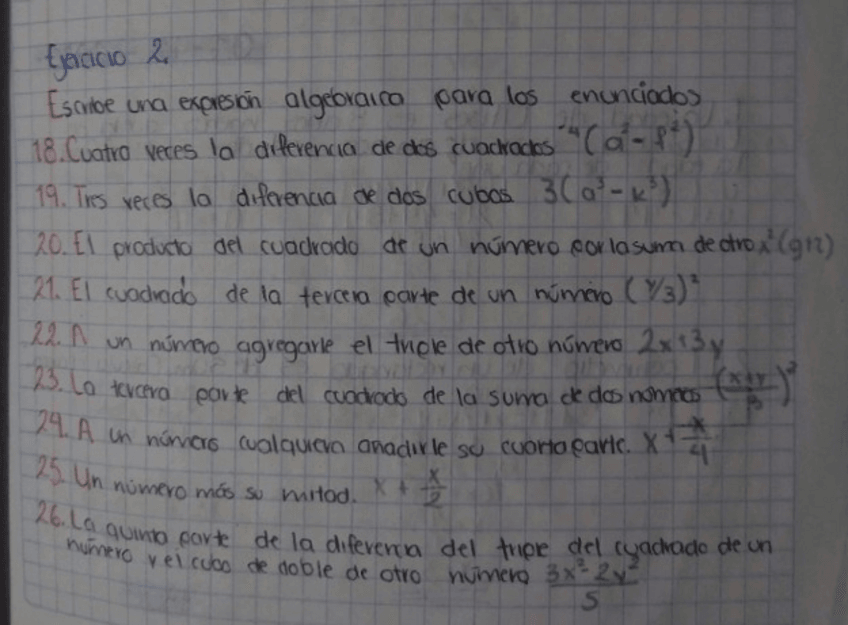 Ejercicio 2
Escribe una expresión algebraica para los enunciados
18. Cuatro veces la diferencia de dos cuadrados 4(a² - f²)
19. Tres veces la diferencia de dos cubos 3(a³ - k³)
20. El producto del cuadrado de un número por la suma de otro x²(g+z)
21. El cuadrado de la tercera parte de un número (y/3)²
22. A un número agregarle el triple de otro número 2x+3y
23. La tercera parte del cuadrado de la suma de dos números (x+y/3)²
24. A un número cualquiera anadirle su cuarta parte. x + x/4
25. Un número más su mitad. x + x/2
26. La quinta parte de la diferencia del triple del cuadrado de un
número y el cubo de doble de otro número 3x²-2y²/5